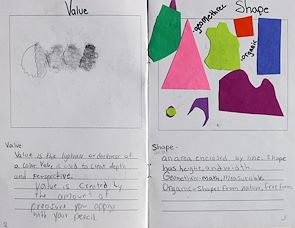 Value
Value
Value is the lightness or darkness of
a color. Value is used to creat depth
and perspective.
Value is created by
the amount of
pressure you apply
with your pencil
2
Shape
geometric
organic
Shape-
an area enclosed by line. Shape
has height, and width.
Geometric- math, measurable
Organic- shapes from nature, free form
3